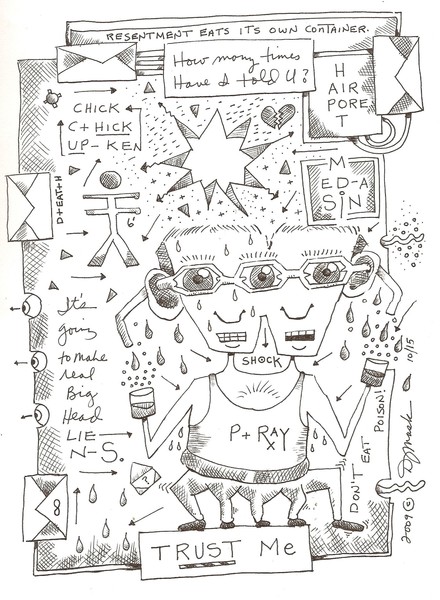 RESENTMENT EATS ITS OWN CONTAINER.
How many times
Have I told U?
H
AIR
PORE
T
CHICK
C+HICK
UP-KEN
M
ED-A
SIN
D+EAT+H
6
It's
going
to make
real
Big
Head
LIE
N-S.
SHOCK
P+RAY
X
DON'T EAT POISON!
10/15
2009 ©
?
8
TRUST Me